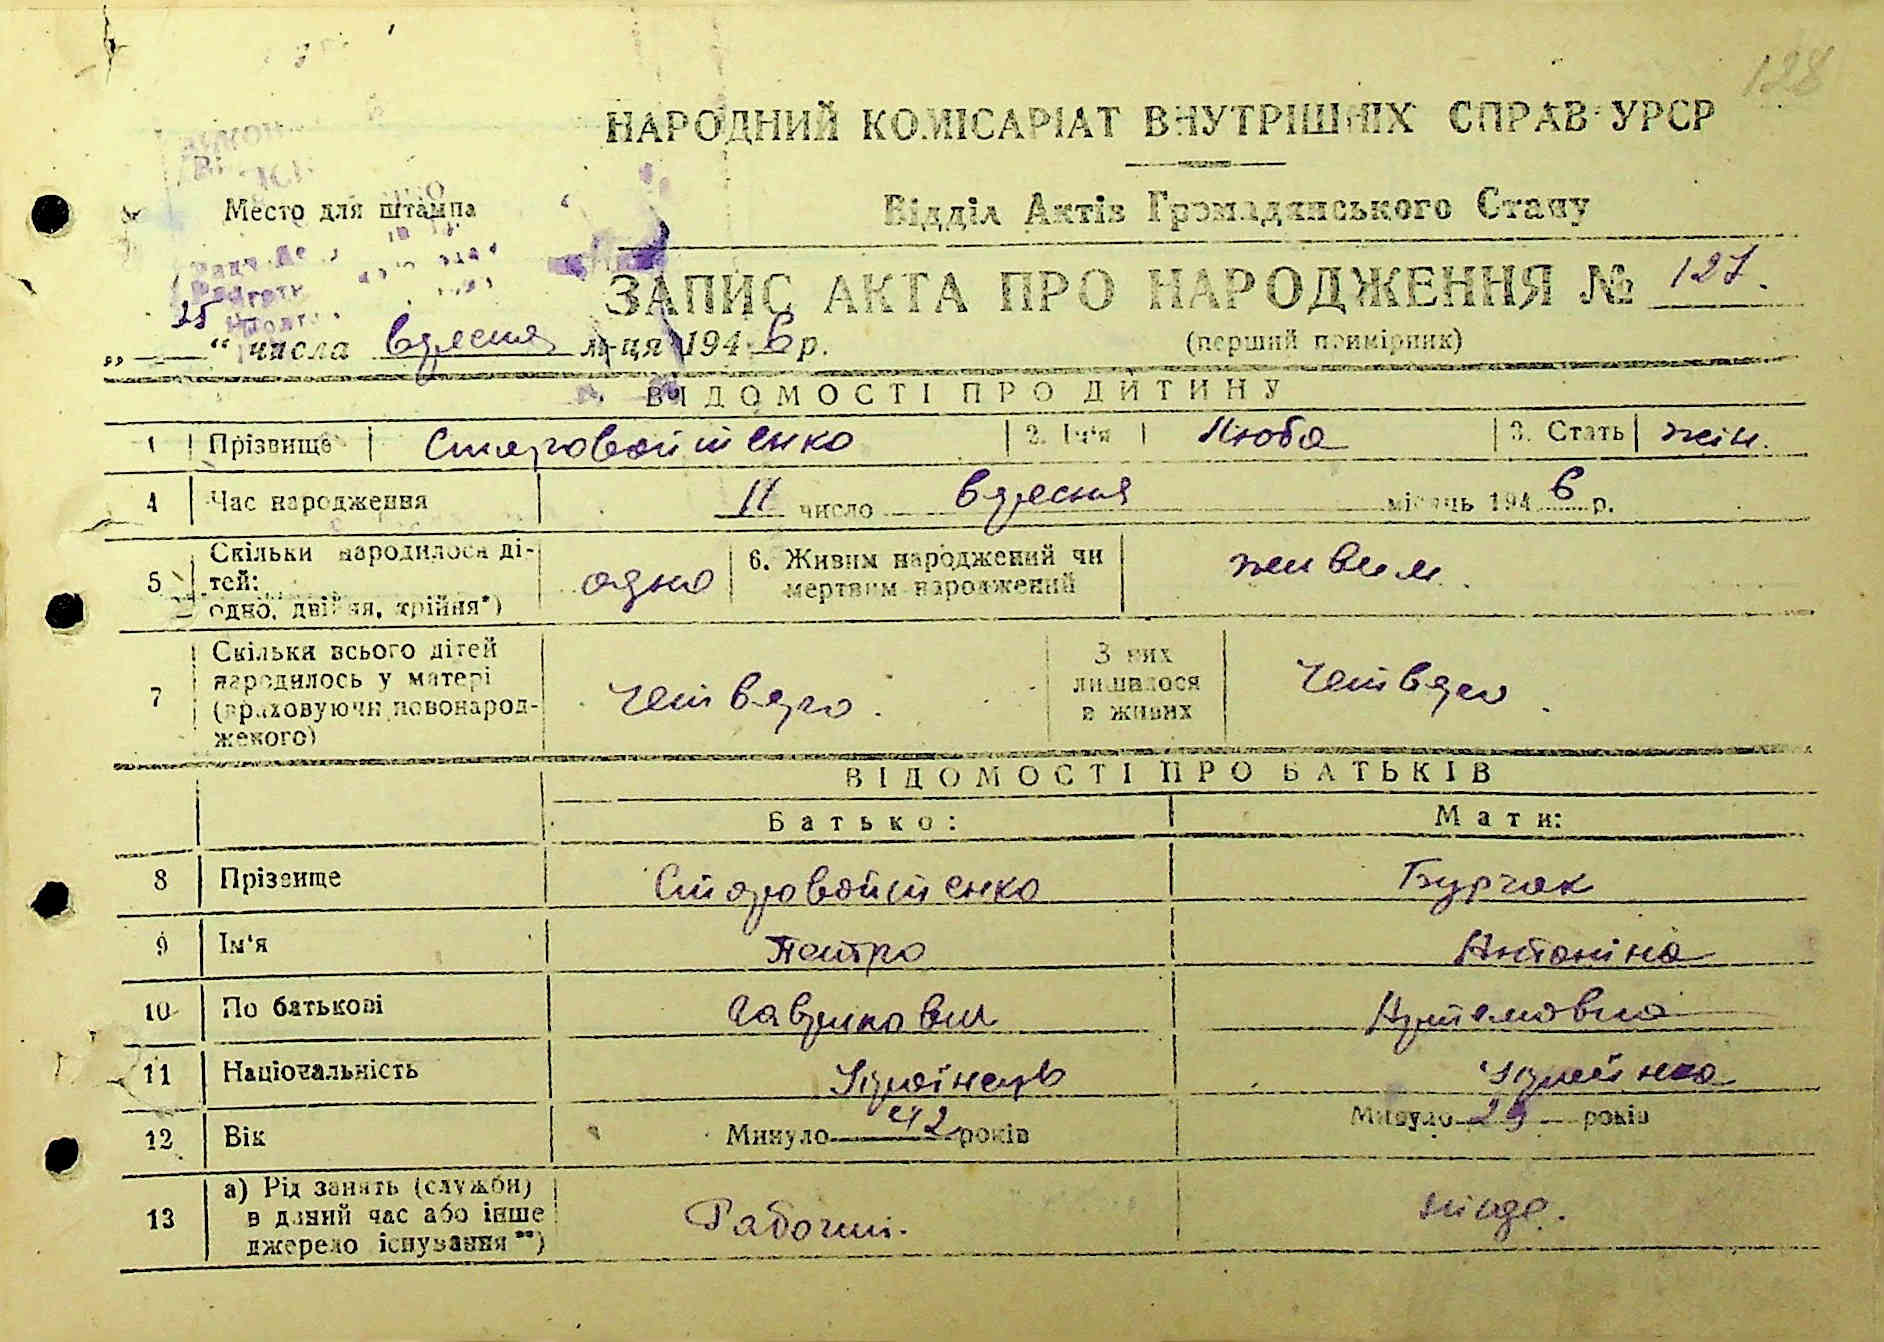 128
НАРОДНИЙ КОМІСАРІАТ ВНУТРІШНІХ СПРАВ УРСР
Место для штампа
Відділ Актів Громадянського Стану
ЗАПИС АКТА ПРО НАРОДЖЕННЯ № 127.
(перший примірник)
„25“ числа вересня м-ця 1946 р.
ВІДОМОСТІ ПРО ДИТИНУ
1 Прізвище Старовойтенко 2. Ім'я Люба 3. Стать жін.
4 Час народження 11 число вересня місяць 1946 р.
5 Скільки народилося ді-
тей:
одно, двійня, трійня*) одно 6. Живим народжений чи
мертвим народжений живим.
7 Скільки всього дітей
народилось у матері
(враховуючи новонарод-
женого) четверо. З них
лишилося
в живих четверо.
ВІДОМОСТІ ПРО БАТЬКІВ
Батько: Мати:
8 Прізвище Старовойтенко Бурчак
9 Ім'я Петро Антоніна
10 По батькові Гаврилович Артемовна
11 Національність Українець Українка
12 Вік Минуло 42 років Минуло 29 років
13 а) Рід занять (служби)
в даний час або інше
джерело існування**) Рабочий.